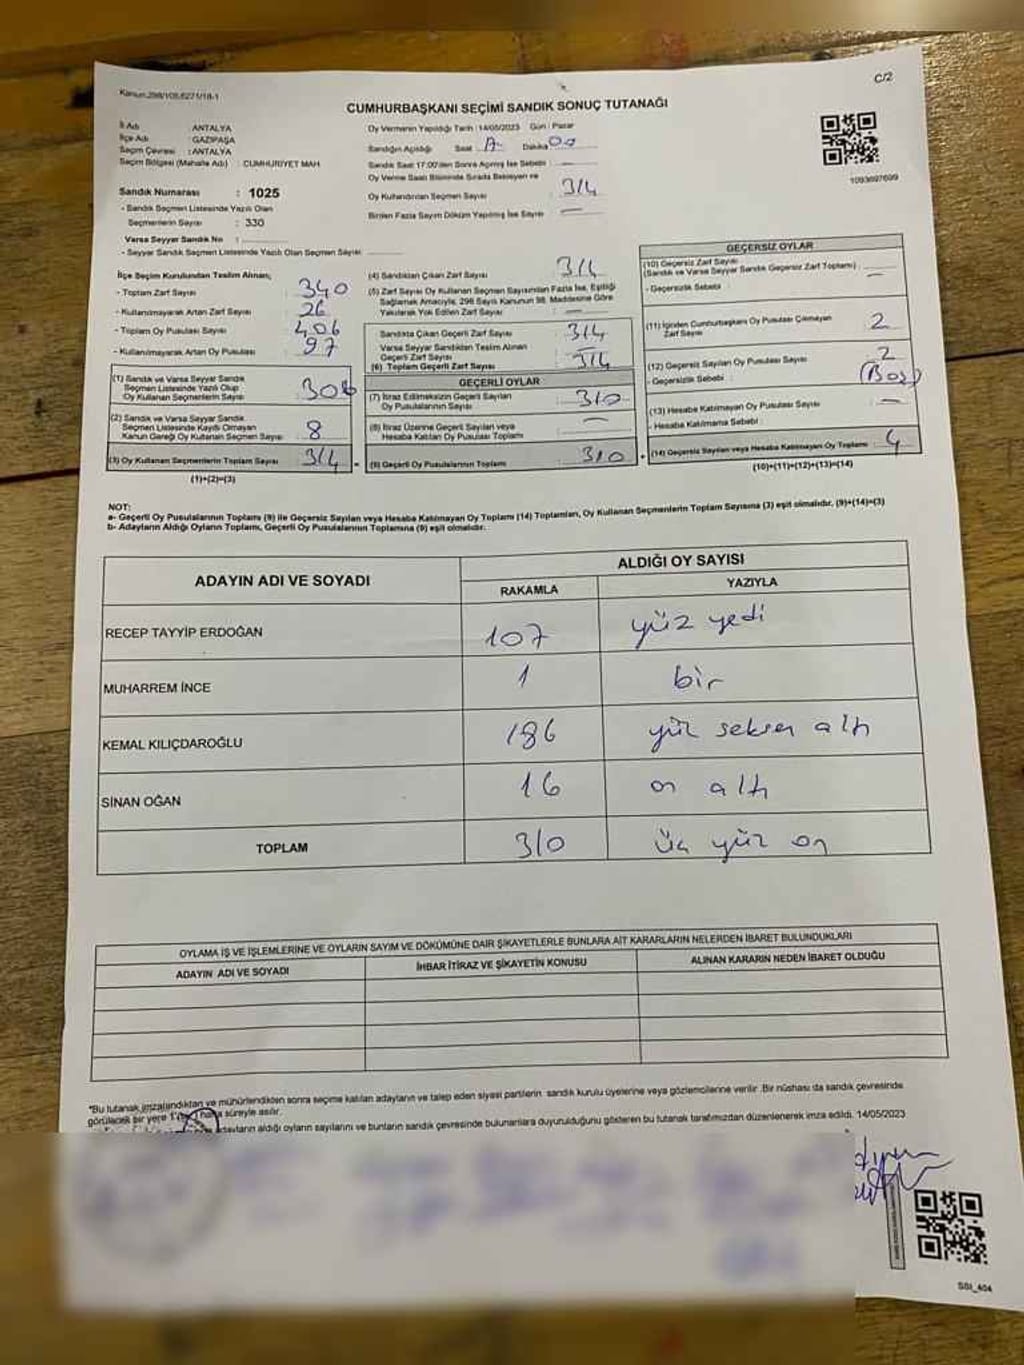 C/2
Kanun.298/105,6271/18-1
CUMHURBAŞKANI SEÇİMİ SANDIK SONUÇ TUTANAĞI
İl Adı : ANTALYA
İlçe Adı : GAZİPAŞA
Seçim Çevresi : ANTALYA
Seçim Bölgesi (Mahalle Adı) : CUMHURİYET MAH
Sandık Numarası : 1025
- Sandık Seçmen Listesinde Yazılı Olan
Seçmenlerin Sayısı : 330
Varsa Seyyar Sandık No :
- Seyyar Sandık Seçmen Listesinde Yazılı Olan Seçmen Sayısı
Oy Vermenin Yapıldığı Tarih :14/05/2023 Gün : Pazar
Sandığın Açıldığı Saat 17 Dakika 00
Sandık Saat 17:00'den Sonra Açılmış İse Sebebi : —
Oy Verme Saati Bitiminde Sırada Bekleyen ve
Oy Kullandırılan Seçmen Sayısı : 314
Birden Fazla Sayım Döküm Yapılmış İse Sayısı —
1093697699
İlçe Seçim Kurulundan Teslim Alınan;
- Toplam Zarf Sayısı : 340
- Kullanılmayarak Artan Zarf Sayısı : 26
- Toplam Oy Pusulası Sayısı : 406
- Kullanılmayarak Artan Oy Pusulası : 97
(1) Sandık ve Varsa Seyyar Sandık
Seçmen Listesinde Yazılı Olup
Oy Kullanan Seçmenlerin Sayısı : 306
(2) Sandık ve Varsa Seyyar Sandık
Seçmen Listesinde Kayıtlı Olmayan
Kanun Gereği Oy Kullanan Seçmen Sayısı : 8
(3) Oy Kullanan Seçmenlerin Toplam Sayısı : 314
(1)+(2)=(3)
(4) Sandıktan Çıkan Zarf Sayısı : 314
(5) Zarf Sayısı Oy Kullanan Seçmen Sayısından Fazla İse, Eşitliği
Sağlamak Amacıyla, 298 Sayılı Kanunun 98. Maddesine Göre
Yakılarak Yok Edilen Zarf Sayısı : —
Sandıkta Çıkan Geçerli Zarf Sayısı : 314
Varsa Seyyar Sandıktan Teslim Alınan
Geçerli Zarf Sayısı : —
(6) Toplam Geçerli Zarf Sayısı : 314
GEÇERLİ OYLAR
(7) İtiraz Edilmeksizin Geçerli Sayılan
Oy Pusulalarının Sayısı : 310
(8) İtiraz Üzerine Geçerli Sayılan veya
Hesaba Katılan Oy Pusulası Toplamı : —
(9) Geçerli Oy Pusulalarının Toplamı : 310
GEÇERSİZ OYLAR
(10) Geçersiz Zarf Sayısı
(Sandık ve Varsa Seyyar Sandık Geçersiz Zarf Toplamı) : —
- Geçersizlik Sebebi :
(11) İçinden Cumhurbaşkanı Oy Pusulası Çıkmayan
Zarf Sayısı : 2
(12) Geçersiz Sayılan Oy Pusulası Sayısı : 2
- Geçersizlik Sebebi : (Boş)
(13) Hesaba Katılmayan Oy Pusulası Sayısı : —
- Hesaba Katılmama Sebebi :
(14) Geçersiz Sayılan veya Hesaba Katılmayan Oy Toplamı : 4
(10)+(11)+(12)+(13)=(14)
NOT:
a- Geçerli Oy Pusulalarının Toplamı (9) ile Geçersiz Sayılan veya Hesaba Katılmayan Oy Toplamı (14) Toplamları, Oy Kullanan Seçmenlerin Toplam Sayısına (3) eşit olmalıdır. (9)+(14)=(3)
b- Adayların Aldığı Oyların Toplamı, Geçerli Oy Pusulalarının Toplamına (9) eşit olmalıdır.
ADAYIN ADI VE SOYADI ALDIĞI OY SAYISI
RAKAMLA YAZIYLA
RECEP TAYYİP ERDOĞAN 107 yüz yedi
MUHARREM İNCE 1 bir
KEMAL KILIÇDAROĞLU 186 yüz seksen altı
SİNAN OĞAN 16 on altı
TOPLAM 310 üç yüz on
OYLAMA İŞ VE İŞLEMLERİNE VE OYLARIN SAYIM VE DÖKÜMÜNE DAİR ŞİKAYETLERLE BUNLARA AİT KARARLARIN NELERDEN İBARET BULUNDUKLARI
ADAYIN ADI VE SOYADI İHBAR İTİRAZ VE ŞİKAYETİN KONUSU ALINAN KARARIN NEDEN İBARET OLDUĞU
*Bu tutanak imzalandıktan ve mühürlendikten sonra seçime katılan adayların ve talep eden siyasi partilerin sandık kurulu üyelerine veya gözlemcilerine verilir .Bir nüshası da sandık çevresinde
görülecek bir yere 1 hafta süreyle asılır.
adayların aldığı oyların sayılarını ve bunların sandık çevresinde bulunanlara duyurulduğunu gösteren bu tutanak tarafımızdan düzenlenerek imza edildi. 14/05/2023
SSI_404